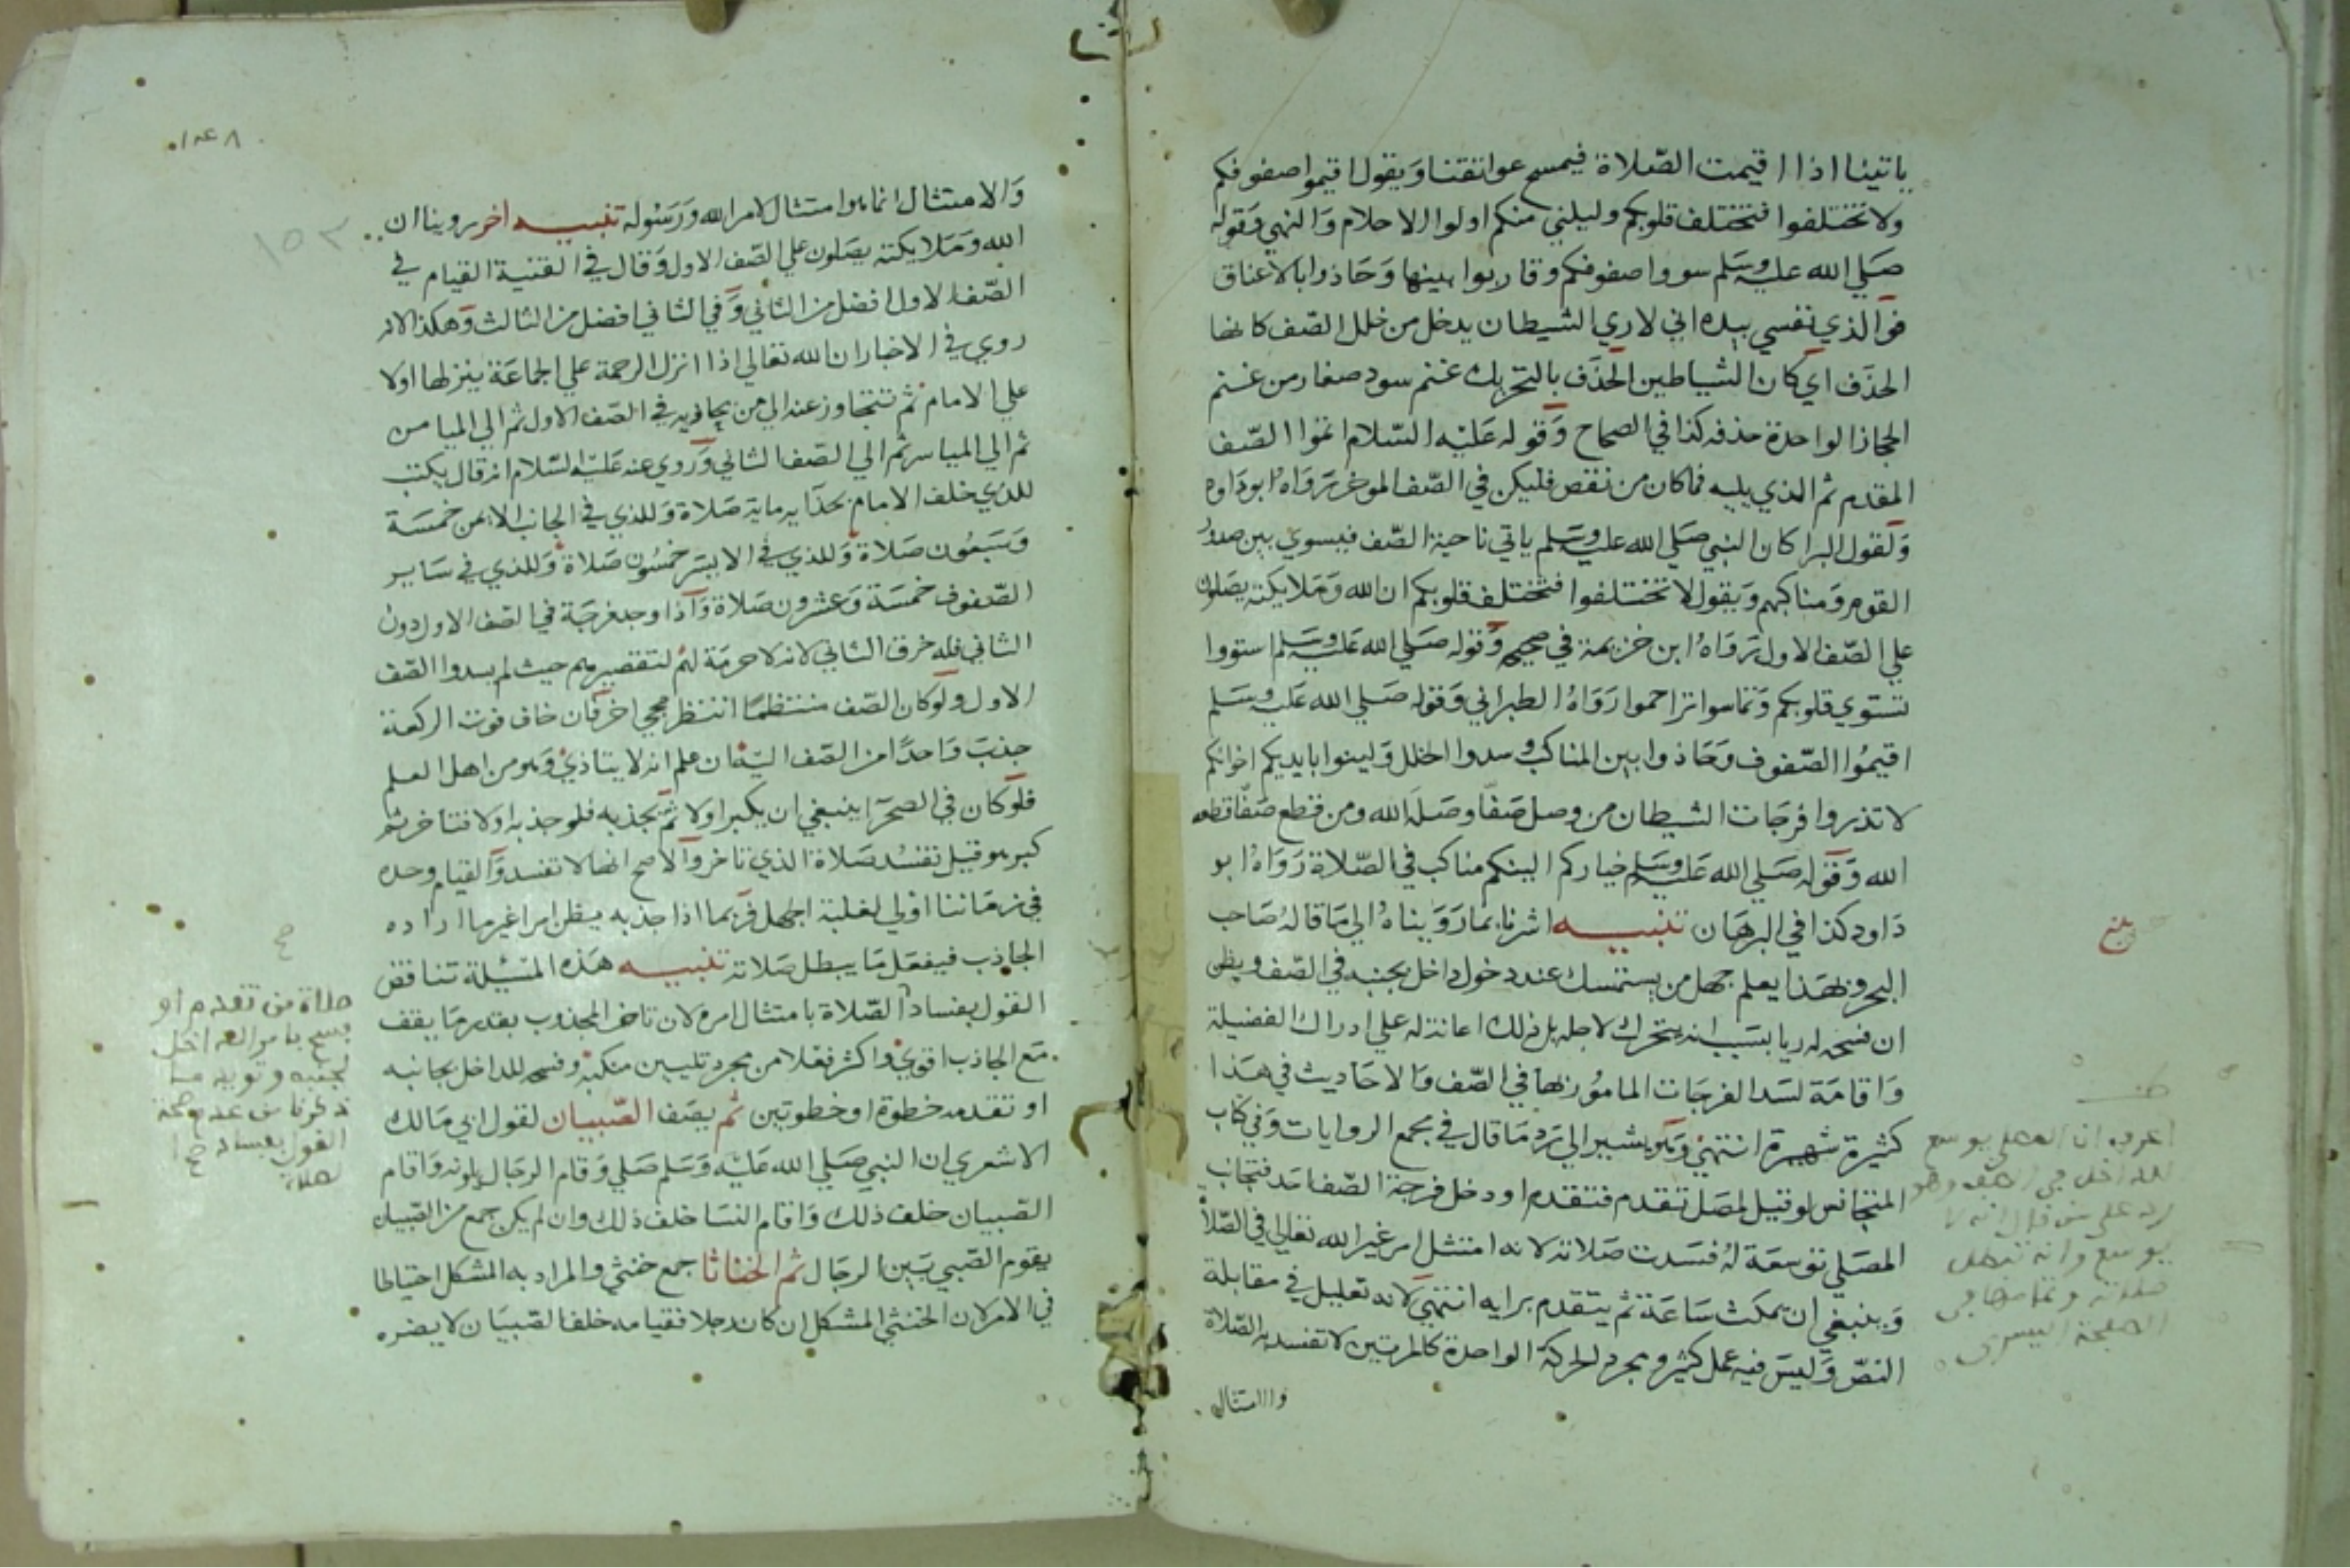 ياتينا اذا اقيمت الصّلاة فيمسح عواتقنا وَيقول اقيموا صفوفكم
ولا تختلفوا فتختلف قلوبكم وليلني منكم اولوا الاحلام وَالنهي وَقوله
صَلي الله عليه وسَلم سووا صفوفكم وقاربوا بينها وَحَاذوا بالاعناق
فوَالذي نفسي بيده اني لاري الشيطان يدخل من خلل الصّف كانها
الحذَف اي كان الشياطين الحذَف بالتحريك غنم سود صغار من غنم
الحجاز الواحدة حذفه كذا في الصحاح وَقوله عَليْه السّلام اتموا الصّف
المقدم ثم الذي يليه فما كان من نقص فليكن في الصّف الموخر رَوَاهُ ابودَاود
وَلقول البرا كان النبي صَلي الله عليه وسَلم ياتي ناحية الصّف فيسوي بين صدور
القوم وَمناكبهم وَيقول لا تختلفوا فتختلف قلوبكم ان الله وَمَلايكته يصَلون
علي الصّف الاول رَوَاهُ ابن خزيمة في صحيحه وَقوله صَلي الله عَليه وسَلم استووا
تستوي قلوبكم وَتماسوا تراحموا رَوَاهُ الطبراني وَقوله صَلي الله عَليه وسَلم
اقيمُوا الصّفوف وَحَاذوا بين المناكب وسدوا الخلل وَلينوا بايديكم اخوانكم
لا تذروا فرجَات الشيطان من وصل صَفّا وصَله الله ومن قطع صَفّا قطعه
الله وَقوله صَلي الله عَليه وسَلم خياركم الينكم مناكب في الصّلاة رَوَاهُ ابو
دَاود كذا في البرهَان تنبيه اشرنا بما رَوَيناهُ الي مَا قالهُ صَاحب
البحر وَبهَذا يعلم جهل من يستمسك عند دخول داخل بجنبه في الصّف ويظن
ان فسحه له ريا بسَبب انه يتحرك لاجله بل ذلك اعانة له علي ادراك الفضيلة
وَاقامَة لسَد الفرجَات المامُور بها في الصّف وَالاحَاديث في هَذا
كثيرة شهيرة انتهيْ وَهو يشير الي رَد مَا قال في مجمع الروايات وَفي كتاب
المتجانس لو قيل لمصَل تقدم فتقدم او دخل فرجة الصّف احَد فتجانب
المصَلي توسعَة لهُ فسَدت صَلاته لانه امتثل امر غير الله تعالي في الصّلاة
وَينبغي ان يمكث سَاعَة ثم يتقدم برايه انتهيْ لانه تعليل في مقابلة
النصّ وَليسَ فيه عمل كثير ومجرد الحركة الواحدة كالمرتين لا تفسد به الصّلاة
والامتثال
بلغ
اعرف ان المصلي يوسع
للداخل في الصف وهو
رد علي من قال انه لا
يوسع وانه تبطل
صلاته وتمامها في
الصفحة اليسري
١٤٨
١٥٢
وَالامتثال انما هوا متثال لامر الله وَرَسُوله تنبيه اخر روينا ان
الله وَمَلايكته يصَلون علي الصّف الاول وَقال في القنية القيام في
الصّف الاول افضل من الثاني وَفي الثاني افضل من الثالث وَهكذا لانه
روي في الاخبار ان الله تعالي اذا انزل الرحمة علي الجماعَة ينزلها اولا
علي الامام ثم تتجاوز عنه الي من يحاذيه في الصّف الاول ثم الي الميامن
ثم الي المياسر ثم الي الصّف الثاني وَروي عنه عَليْه السّلام انه قال يكتب
للذي خلف الامام بحذَايه ماية صَلاة وَللذي في الجانب الايمن خمسَة
وَسَبعُون صَلاة وَللذي في الايسَر خمسُون صَلاة وَللذي في سَاير
الصّفوف خمسَة وَعشرون صَلاة وَاذا وجد فرجَة في الصّف الاول دون
الثاني فله خرق الثاني لانه لا حرمَة لهُم لتقصيرهم حيث لم يسدوا الصّف
الاول ولَو كان الصّف منتظمًا انتظر مجي اخر فان خاف فوت الركعة
جذبَ وَاحدًا من الصّف اليه ان علم انه لا يتاذيْ وَهو من اهل العلم
فلو كان في الصحرَآ ينبغي ان يكبر اولا ثم يجذبه فلو جذبه اولا فتاخر ثم
كبر هو قيل تفسُد صَلاة الذي تاخر وَالاصح انها لا تفسد وَالقيام وحده
في زمَاننا اولي لغلبة الجهل فرَبما اذا جذبه يظن امرا غير ما اراده
الجاذب فيفعَل مَا يبطل صَلاته تنبيه هَذه المسْئلة تناقض
القول بفساد الصّلاة بامتثال امره لان تاخر المجذوب بقدر مَا يقف
مَع الجاذب اقويْ واكثر فعْلا من مجرد تليين منكبه وفسحه للداخل بجانبه
او تقدمه خطوة او خطوتين ثم يصَف الصّبيان لقول ابي مَالك
الاشعري ان النبي صَلي الله عَليْه وَسَلم صَلي وَقام الرجَال يلونه وَاقام
الصّبيان خلف ذلك وَاقام النسَا خلف ذلك وان لم يكن جمع من الصّبيان
يقوم الصّبي بَين الرجَال ثم الخناثا جمع خنثي والمراد به المشكل احتياطا
في الامر لان الخنثي المشكل ان كان رجلا فقيامه خلف الصّبيَان لا يضره
صح
صلاة من تقدم او
فسح بامر الداخل
لجنبه وتوبه مما
ذكرنا من عدم صحة
القول بفساد صح